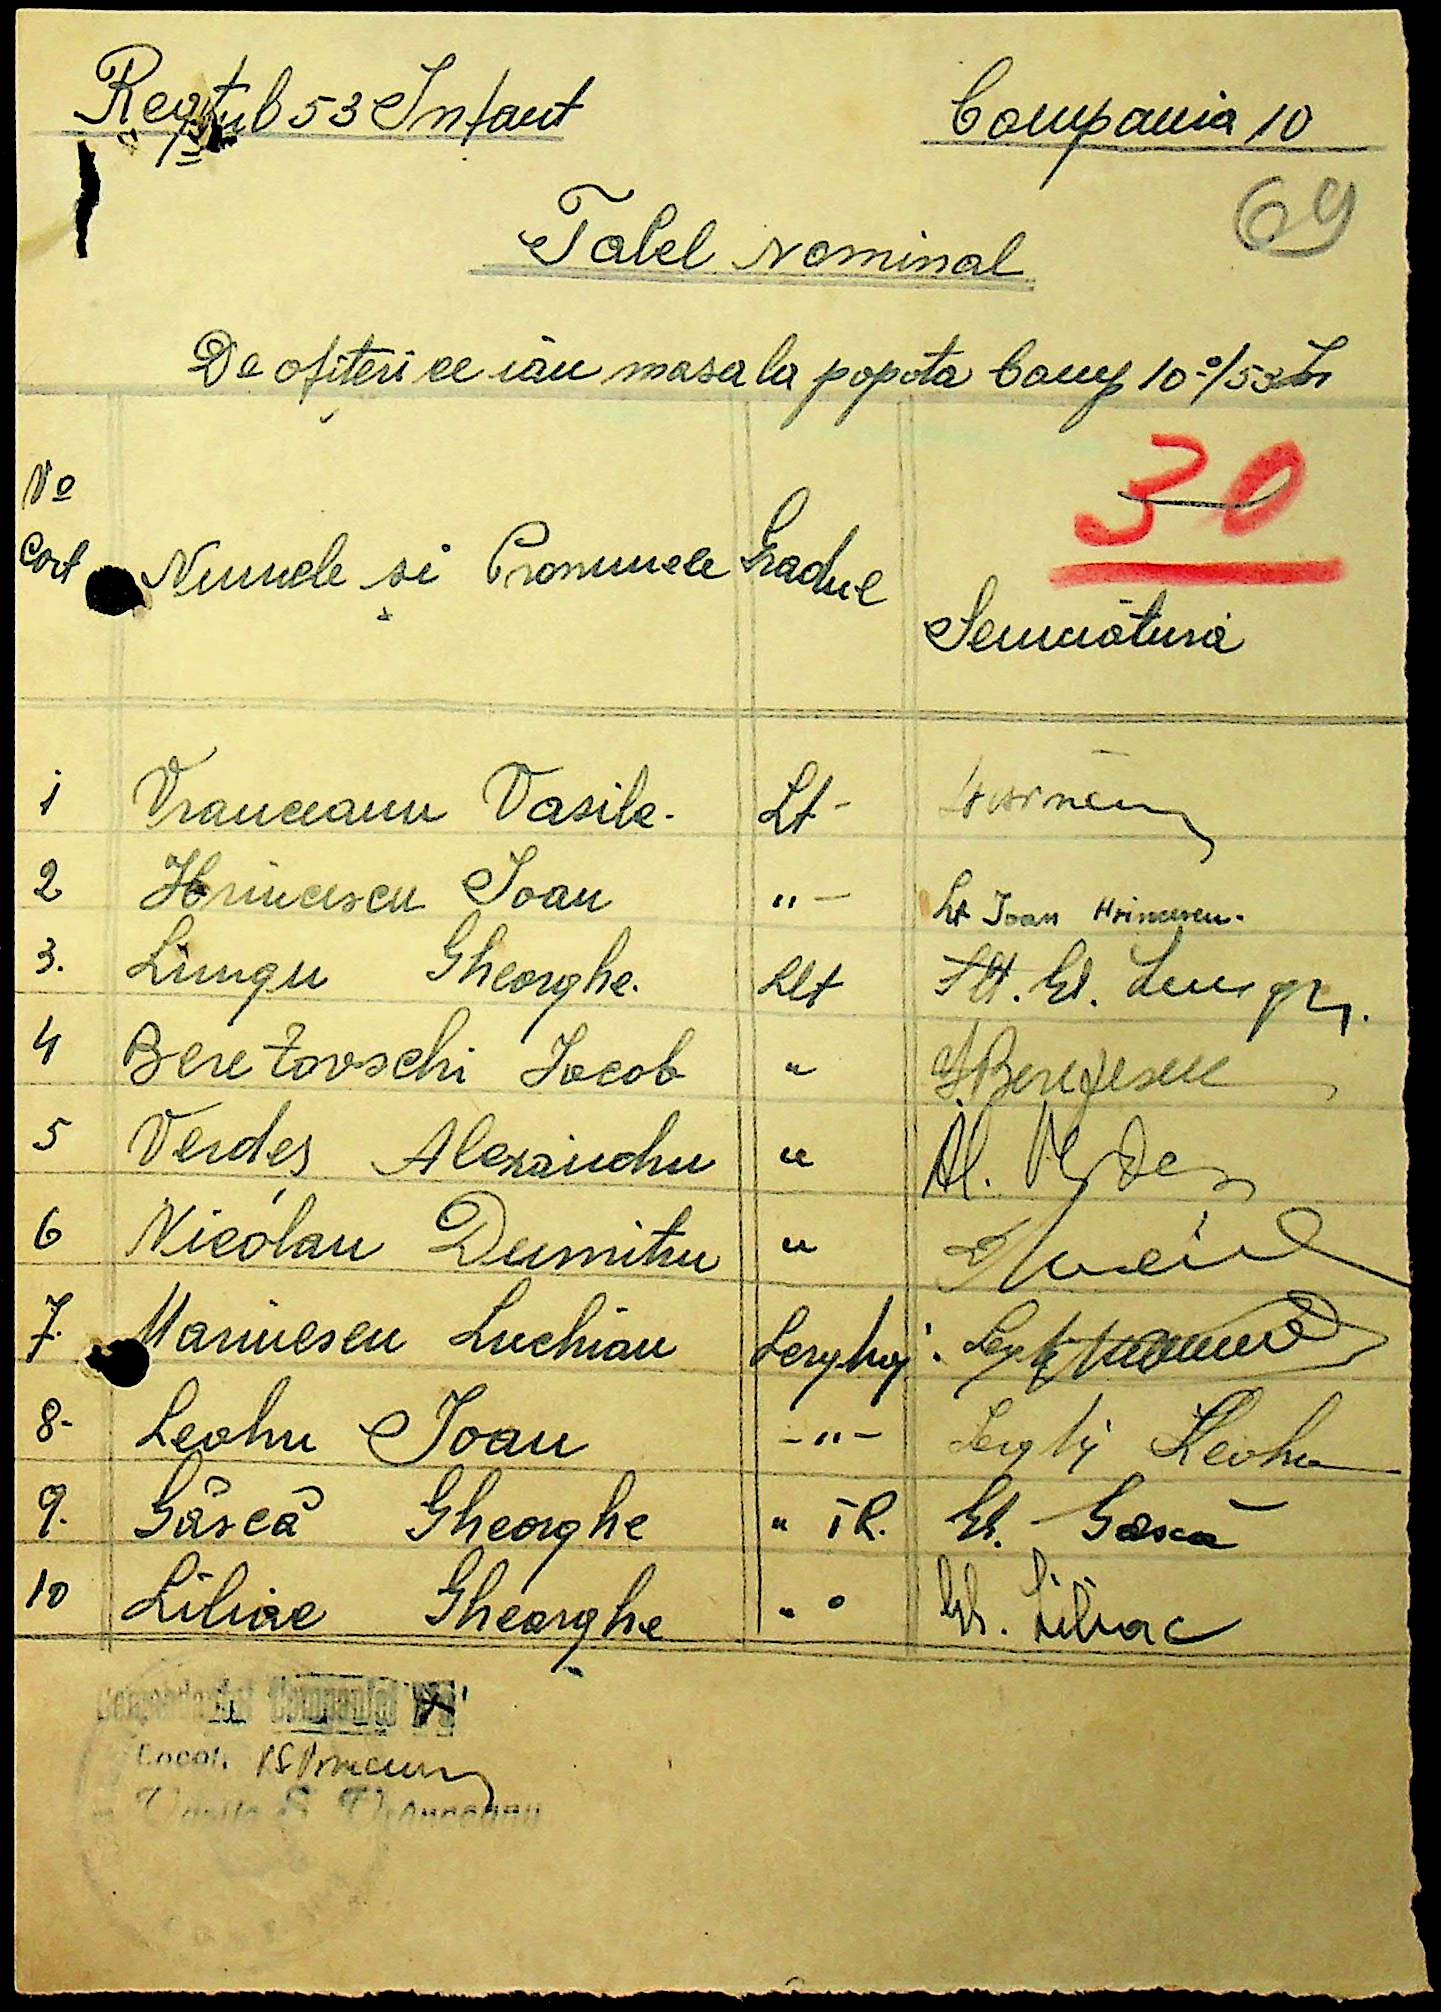 Regtul 53 Infant Compania 10
69
Tabel Nominal
De ofiteri ce iău masa la popota Comp 10-a/53 I
30
No Cort Numele și Pronumele Gradul Semnătura
1 Vranceanu Vasile. Lt-
2 Hrincescu Ioan "- Lt Ioan Hrincescu.
3. Lungu Gheorghe. Slt Slt. Gh. Lungu.
4 Berezovschi Iacob " I. Berezescu
5 Verdeș Alexandru " Al. Verdeș
6 Nicolau Dumitru "
7. Marinescu Luchian Serg
8- Leohu Ioan -"- Serg Leohu
9. Gâscă Gheorghe " T.R. Gh. Gâscă
10 Liliac Gheorghe " " Gh. Liliac
Comandantul Companiei
Locot.
Vasile S Vranceanu